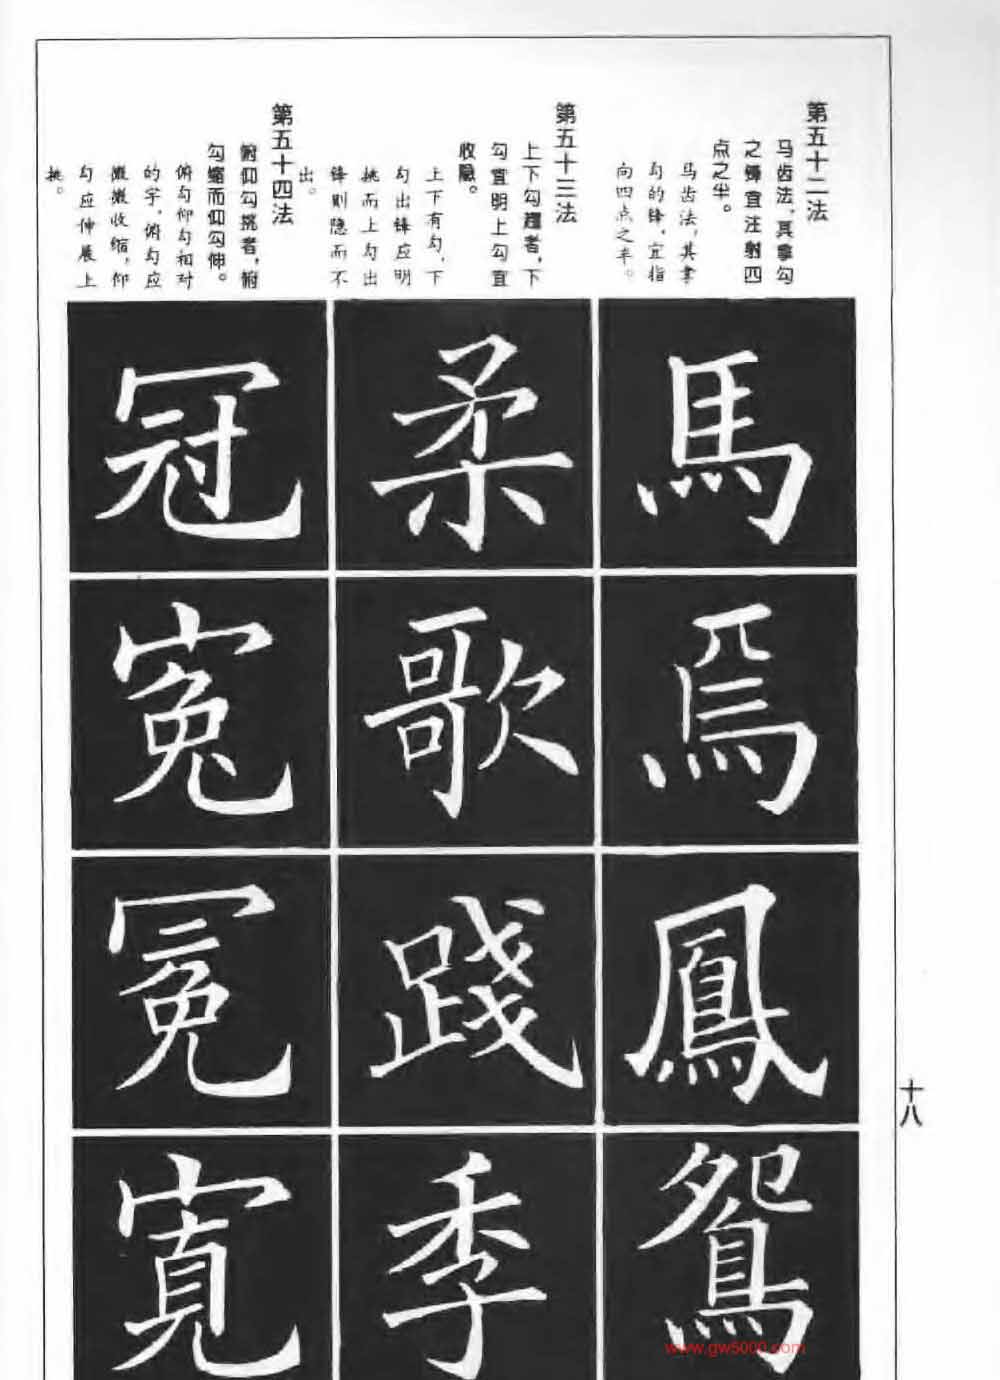 第五十二法
马齿法，其拿勾
之锋宜注射四
点之半。
马齿法，其拿
勾的锋，宜指
向四点之半。
第五十三法
上下勾趯者，下
勾宜明上勾宜
收隐。
上下有勾，下
勾出锋应明
挑而上勾出
锋则隐而不
出。
第五十四法
俯仰勾挑者，俯
勾缩而仰勾伸。
俯勾仰勾相对
的字，俯勾应
微微收缩，仰
勾应伸展上
挑。
馬
焉
鳳
鴛
柔
歌
踐
季
冠
寃
冕
寛
十八
www.gw5000.com